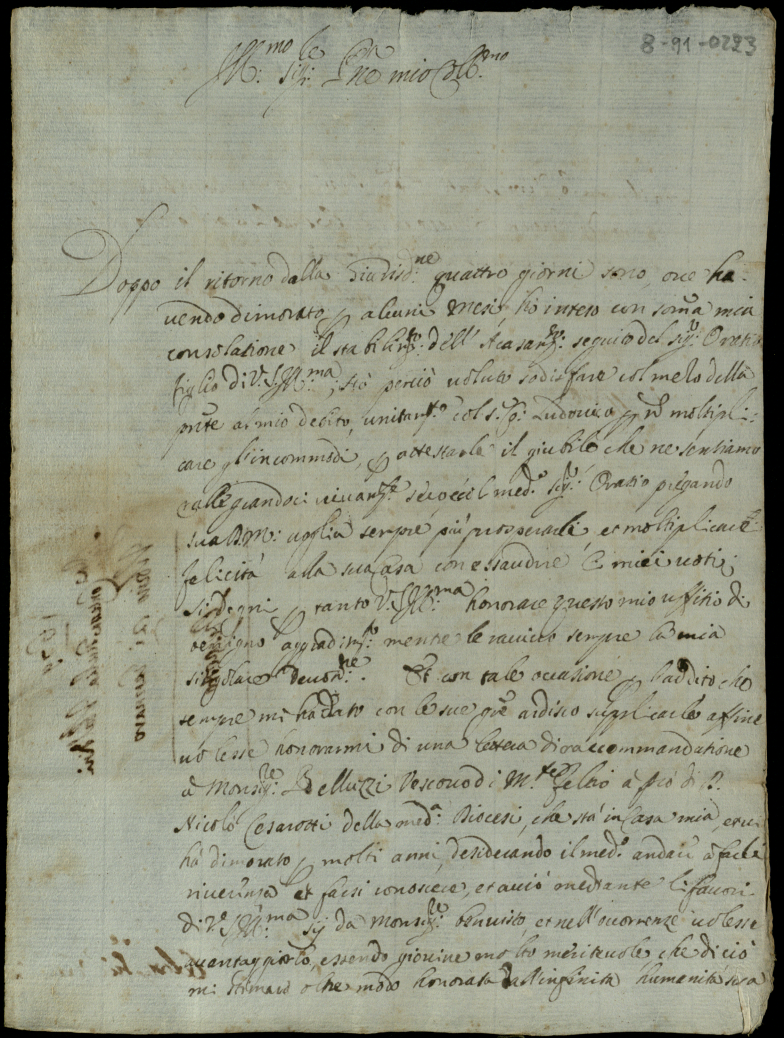 8-91-0223
Ill:mo Sig:re Pne mio Col:mo
Doppo il ritorno dalla Giudisd:ne quattro giorni sono, ove ha-
vendo dimorato p alcuni mesi, hò inteso con som̃a mia
consolatione il stabilim:to dell' Acasam:to seguito del sig:r Oratio
figlio di V:S: Ill:ma; hò perciò voluto sodisfare col mezo della
pnte al mio debito, unitam:te col s:r Ludovico p nõ moltipli-
care gl'incommodi, p attestarle il giubilo che ne sentiamo
rallegrandoci vivam:te seco e col med:o sig:r Oratio pregando
sua D:M: voglia sempre più prosperarli, et moltiplicare
felicità alla sua Casa con essaudire i miei voti;
si degni p tanto V:S: Ill:ma honorare questo mio uffitio di
benigno aggradim:to mentre le ravivo sempre la mia
singolare devon:ne. Et con tale occasione, p l'ardito che
sempre mi hà dato con le sue gre ardisco supplicarla affine
volesse honorarmi di una lettera di raccommandatione
à Monsig:re Belluzzi Vescovo di M:te Feltro à prò di D.
Nicolò Cesarotti della med:a Diocesi, che stà in Casa mia, e vi
hà dimorato p molti anni, desiderando il med:o andare à farli
riverenza et farsi conoscere, et acciò mediante li favori
di V:S: Ill:ma sij da Monsig:re benvisto, et nell'occorrenze volesse
avantaggiarlo, essendo giovine molto meritevole che di ciò
mi stimarò oltre modo honorata dall'infinita humanità sua